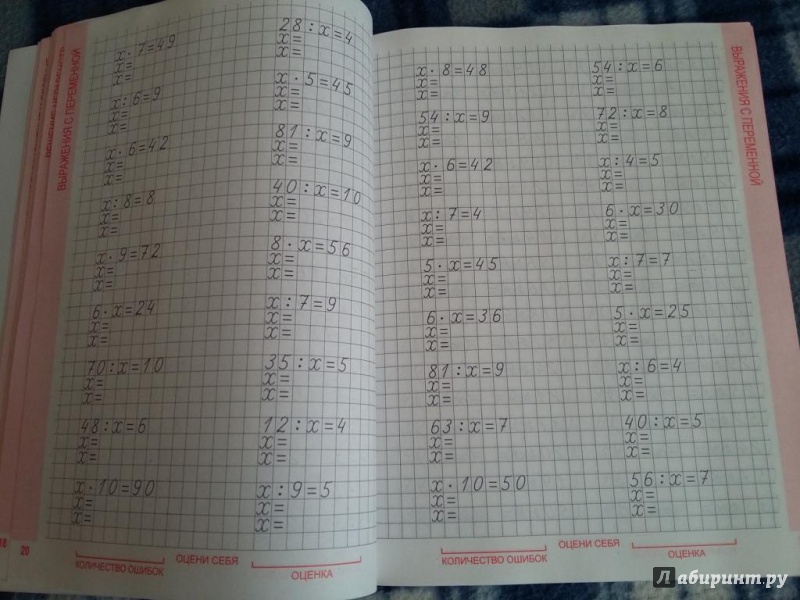 ВЫРАЖЕНИЯ С ПЕРЕМЕННОЙ
x · 7 = 49
x =
x =
x : 6 = 9
x =
x =
x · 6 = 42
x =
x =
x : 8 = 8
x =
x =
x · 9 = 72
x =
x =
6 · x = 24
x =
x =
70 : x = 10
x =
x =
48 : x = 6
x =
x =
x · 10 = 90
x =
x =
28 : x = 4
x =
x =
x · 5 = 45
x =
x =
81 : x = 9
x =
x =
40 : x = 10
x =
x =
8 · x = 56
x =
x =
x : 7 = 9
x =
x =
35 : x = 5
x =
x =
12 : x = 4
x =
x =
x : 9 = 5
x =
x =
18
20
ОЦЕНИ СЕБЯ
КОЛИЧЕСТВО ОШИБОК
ОЦЕНКА
x · 8 = 48
x =
x =
54 : x = 9
x =
x =
x · 6 = 42
x =
x =
x : 7 = 4
x =
x =
5 · x = 45
x =
x =
6 · x = 36
x =
x =
81 : x = 9
x =
x =
63 : x = 7
x =
x =
x · 10 = 50
x =
x =
54 : x = 6
x =
x =
72 : x = 8
x =
x =
x : 4 = 5
x =
x =
6 · x = 30
x =
x =
x : 7 = 7
x =
x =
5 · x = 25
x =
x =
x : 6 = 4
x =
x =
40 : x = 5
x =
x =
56 : x = 7
x =
x =
ВЫРАЖЕНИЯ С ПЕРЕМЕННОЙ
ОЦЕНИ СЕБЯ
КОЛИЧЕСТВО ОШИБОК
ОЦЕНКА
Лабиринт.ру